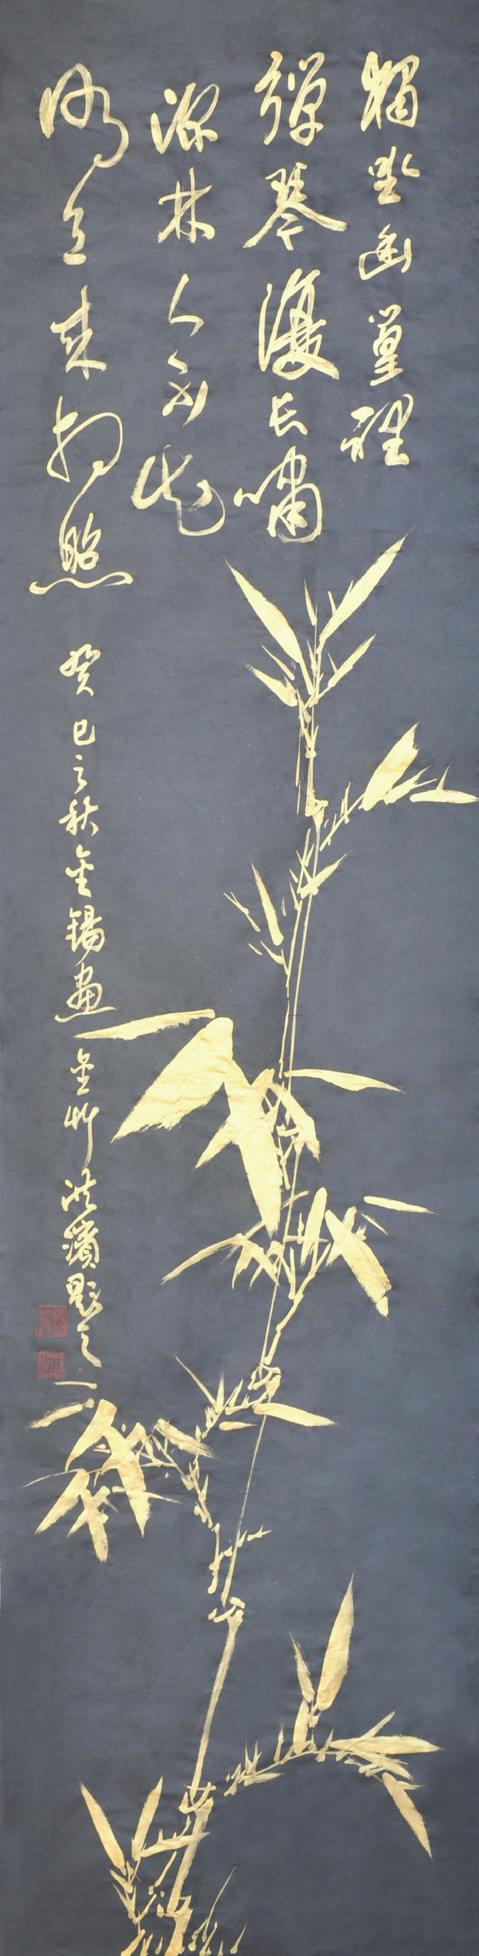 獨坐幽篁裡
彈琴復長嘯
深林人不知
明月來相照
癸巳之秋金錫畫金竹 濱題之